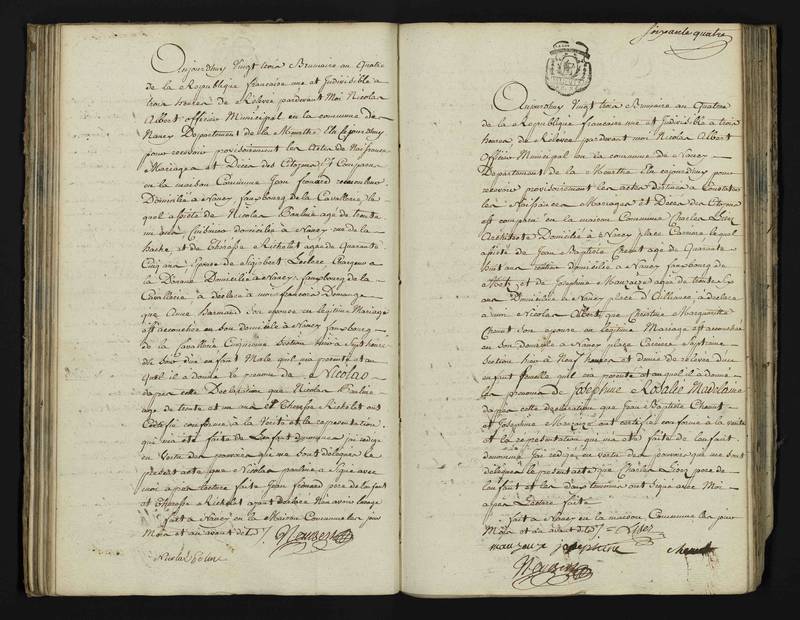 Aujourdhuy Vingt trois Brumaire an Quatre
de la Republique francaise une et Indivisible a
trois heures de Relevé pardevant Moi Nicolas
Albert officier Municipal en la commune de
Nancy Departement de la Meurthe Elu le jourdhuy
pour recevoir provisoirement les Actes de Naissance
Mariages et Deces des Citoyens Est Comparu
en la maison Commune Jean
Domicilié a Nancy faubourg de la Cavallerie, le
quel assisté de Nicolas Pauline agé de trente
un ans Cuisinier domicilié a Nancy rue de la
Hache, et de Therese Richelet agée de Quarante
Cinq ans Epouse de Sigisbert Leclerc Chargeur a
la Douane Domiciliée a Nancy faubourg de la
Cavallerie a declaré a moi
que Anne Son epouse en legitime Mariage
est accouchée en son domicile a Nancy faubourg
de la Cavallerie Cinquieme Section hier a Sept heures
du Soir d'un enfant Male quil m'a presenté et au
quel il a donné le prenom de Nicolas
dapres cette Declaration que Nicolas Pauline
agé de trente et un ans et Therese Richelet ont
Certifié conforme a la Verité et la representation
qui m'a été faite de Lenfant denommé jai redigé
en Vertu des pouvoirs qui me sont delegués le
present acte que Nicolas pauline a Signé avec
moi apres lecture faite Jean pere de lenfant
et Therese Richelet ayant declaré N'en avoir lusage
fait a Nancy en la Maison Commune les jour
Mois et an avant dits
Nicolas Poline
Soixante quatre
Aujourdhuy Vingt trois Brumaire an Quatre
de la Republique francaise une et Indivisible a trois
heures de Relevé pardevant moi Nicolas Albert
Officier Municipal en la commune de Nancy
Departement de la Meurthe Elu cejourdhuy pour
recevoir provisoirement les actes destinés a Constater
les Naissances Mariages et Deces des Citoyens
est comparu en la maison Commune Charles
Architecte Domicilié a Nancy place Carriere lequel
assisté de Jean Baptiste Chenut agé de Quarante
huit ans rentier domicilié a Nancy faubourg de
et de Josephine agée de trente
ans Domiciliée a Nancy place d'Alliance, a declaré
a moi Nicolas Albert, que Christine Margueritte
Chenut Son epouse en legitime Mariage est accouchée
en Son Domicile a Nancy place Carriere Septieme
Section hier a Neuf heures et demie de relevée d'un
enfant femelle quil m'a presenté et au quel il a donné
les prenoms de Josephine Rosalie Madelaine
dapres cette declaration que Jean Baptiste Chenut
et Josephine ont certifié conforme a la verité
et la representation qui m'a été faite de lenfant
denommé Jai redigé en vertu des pouvoirs qui me sont
delegués le present acte que Charles pere de
lenfant et les deux temoins ont Signé avec Moi
apres Lecture faite
fait a Nancy en la maison Commune les jour
Mois et an avant dits
josephine
Chenut